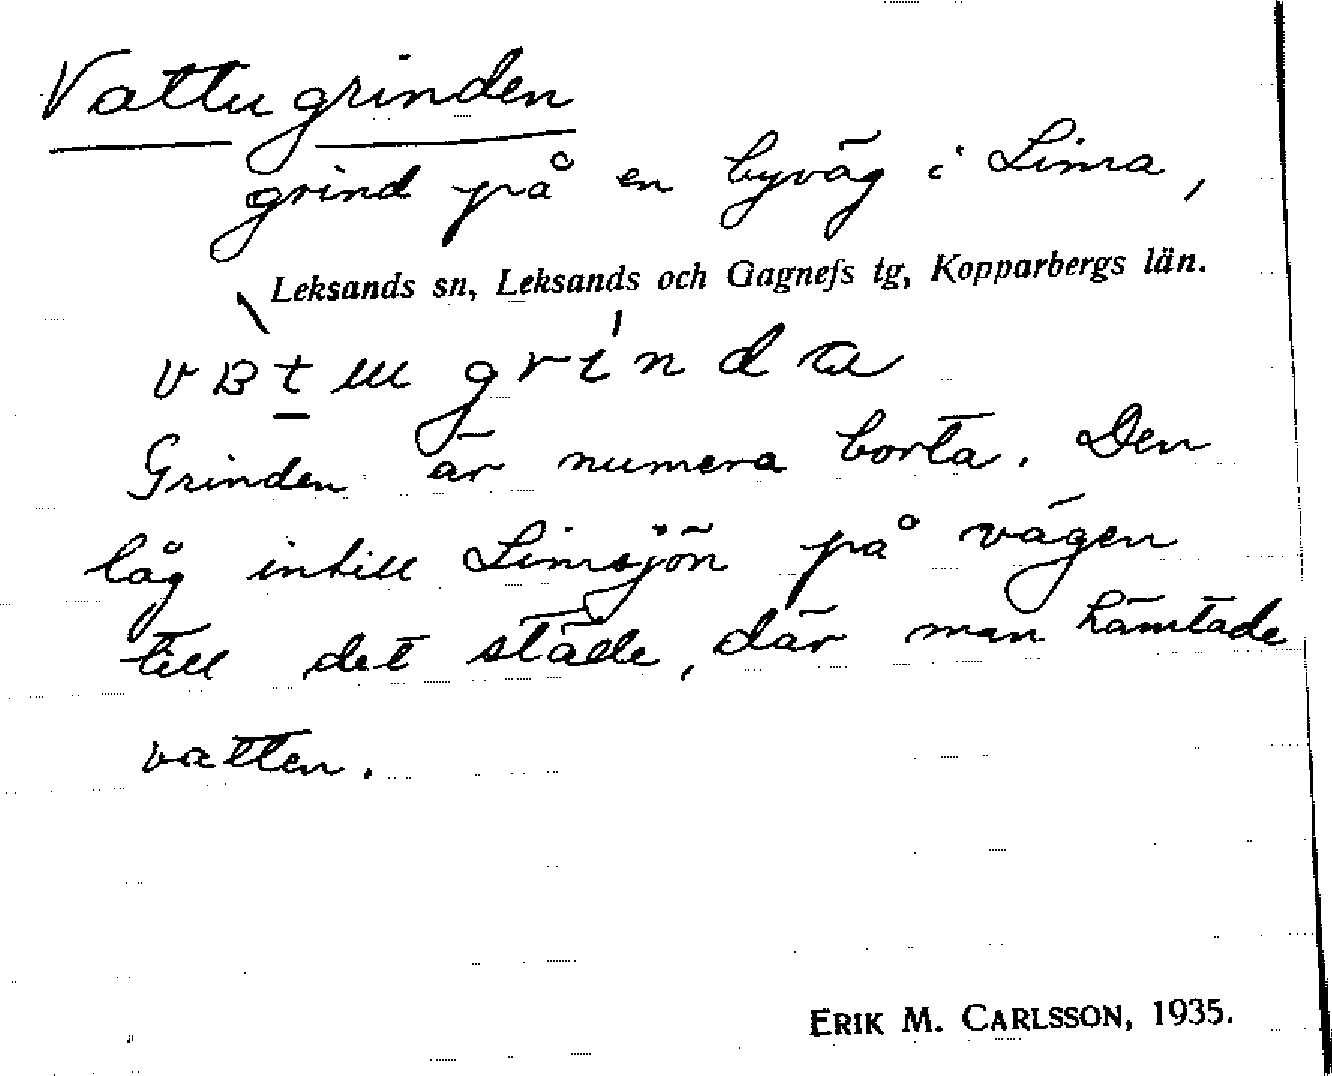 Vattugrinden
grind på en byväg i Lima,
Leksands sn, Leksands och Gagnefs tg, Kopparbergs län.
grinda
Grinden är numera borta. Den
låg intill Limsjön på vägen
till det ställe, där man hämtade
vatten.
ERIK M. CARLSSON, 1935.